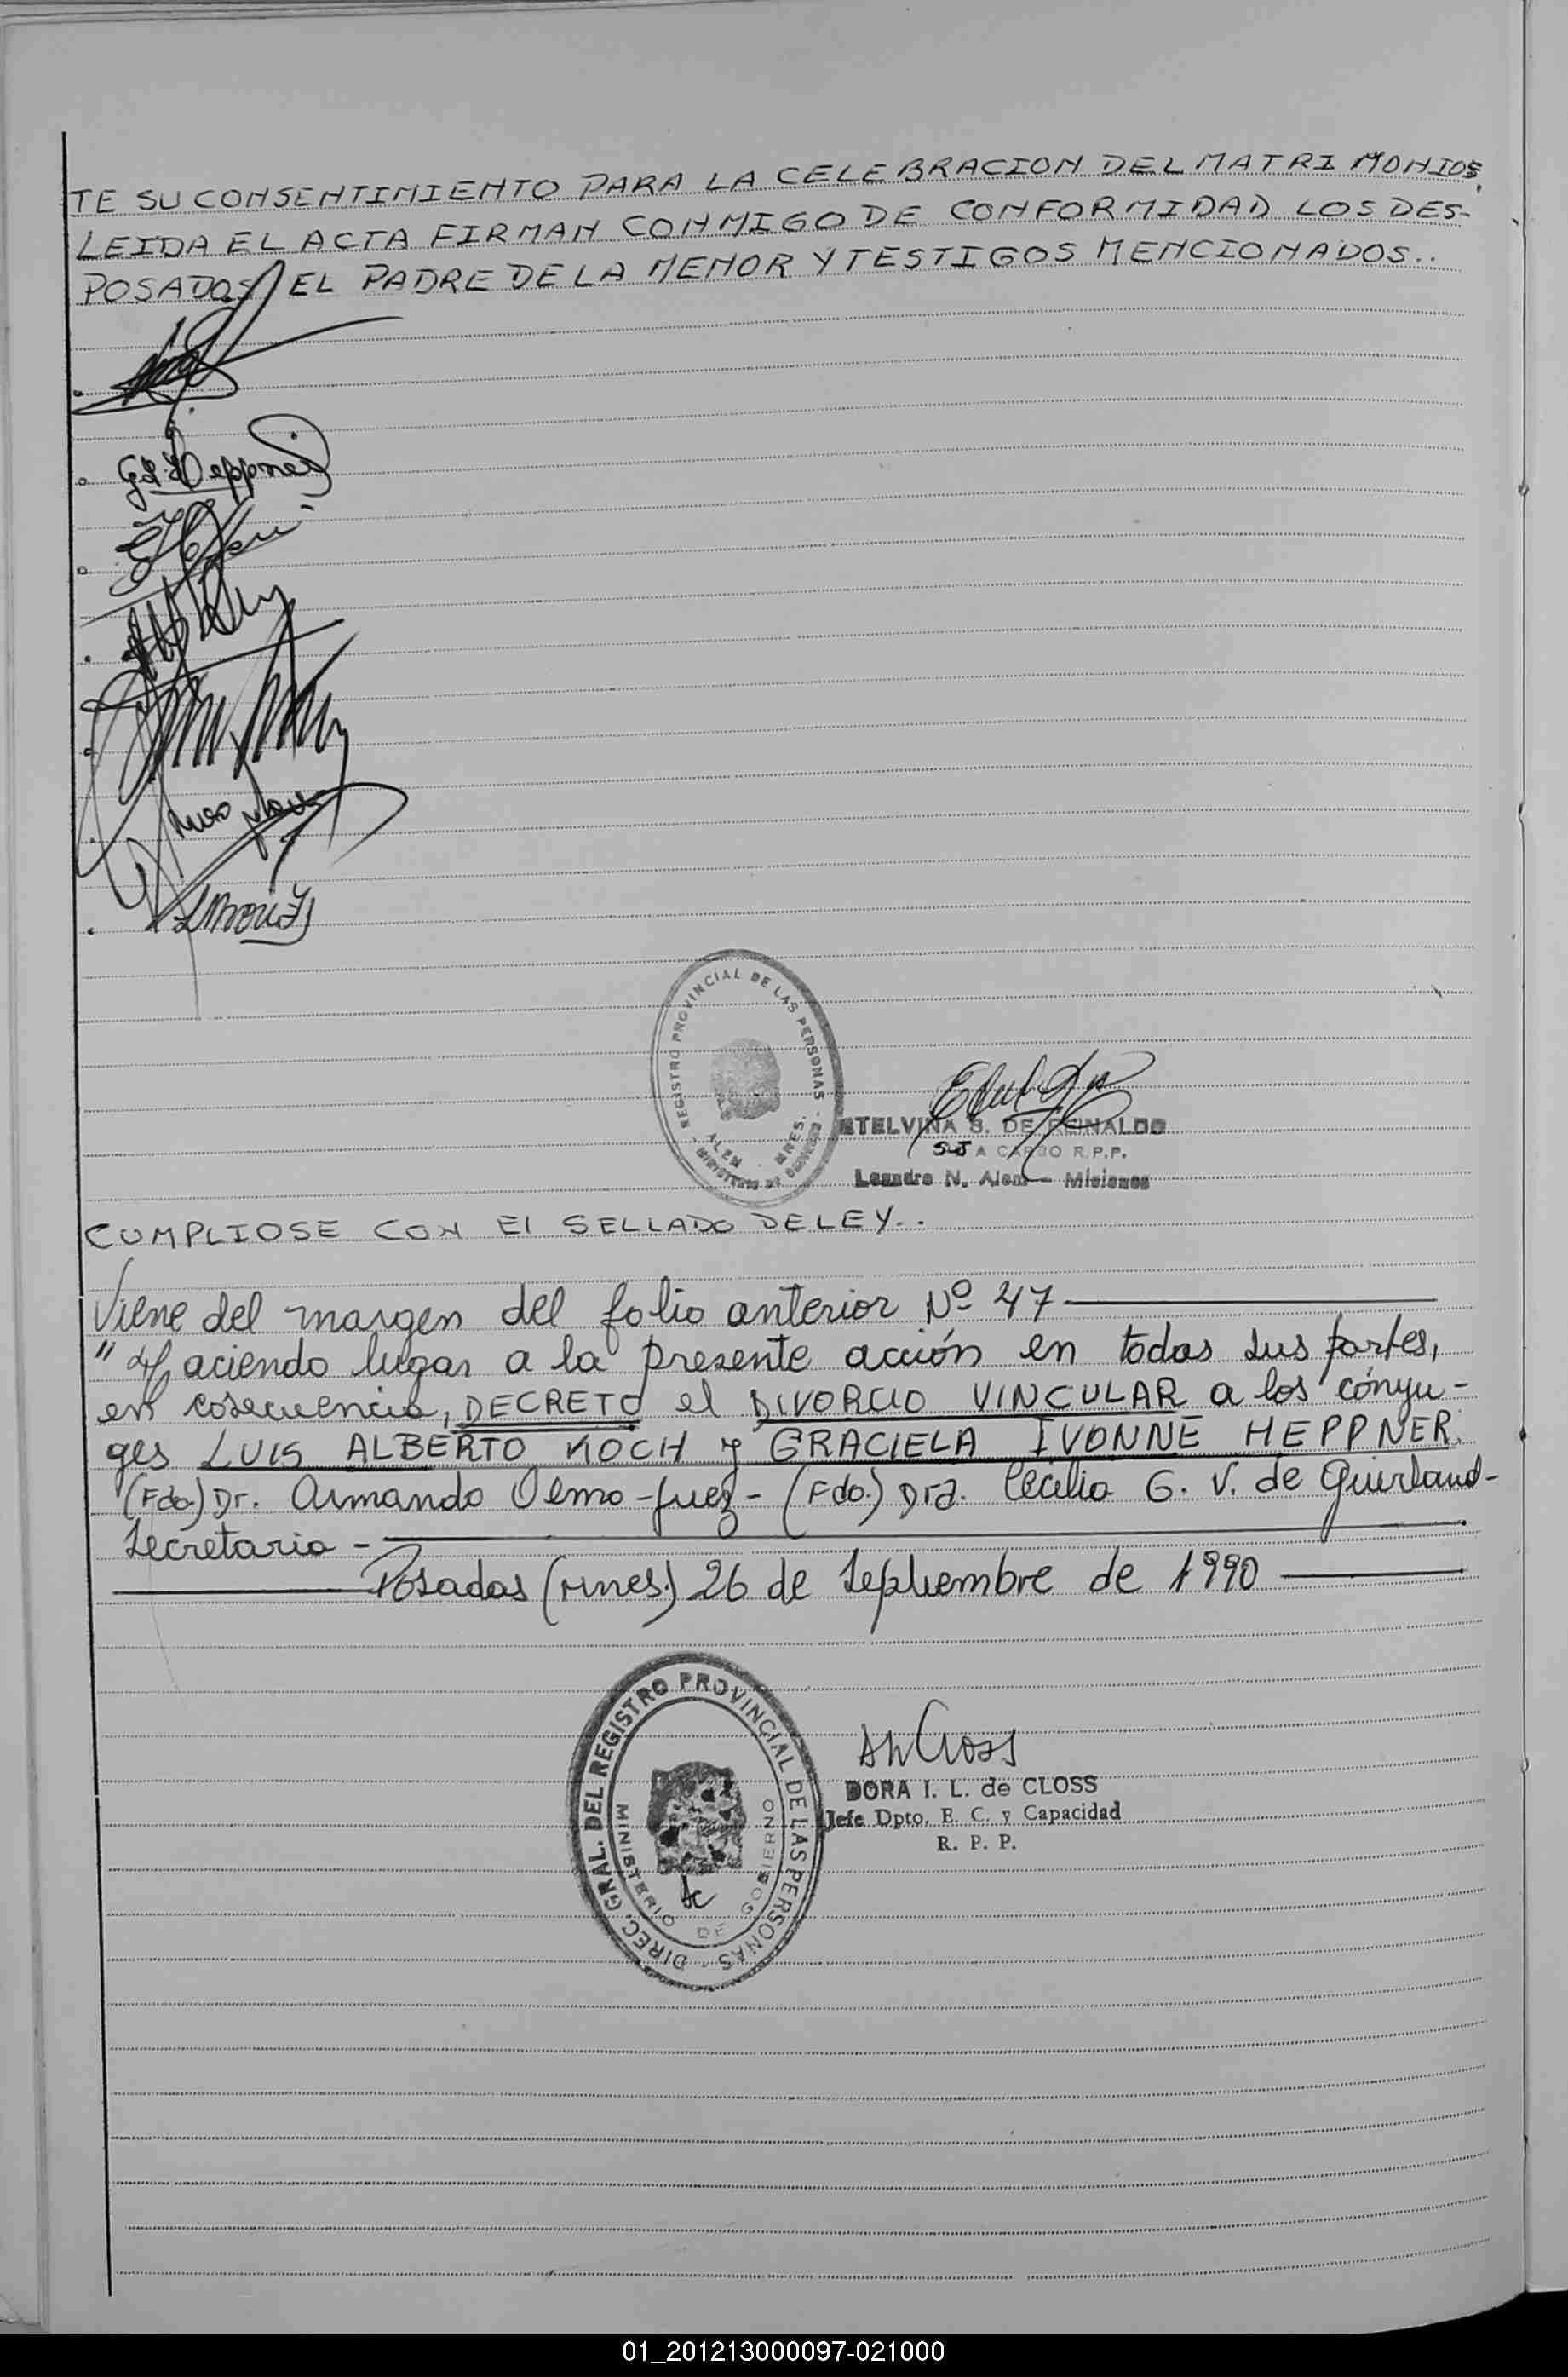 TE SU CONSENTIMIENTO PARA LA CELEBRACION DEL MATRIMONIOS,
LEIDA EL ACTA FIRMAN CONMIGO DE CONFORMIDAD LOS DES-
POSADOS, EL PADRE DE LA MENOR Y TESTIGOS MENCIONADOS..
G I Heppner
REGISTRO PROVINCIAL DE LAS PERSONAS -
ALEM - MNES.
MINISTERIO DE GOBIERNO
ETELVINA S. DE REINALDO
A CARGO R.P.P.
Leandro N. Alem - Misiones
CUMPLIOSE CON El SELLADO DE LEY..
Viene del margen del folio anterior Nº 47
"Haciendo lugar a la presente acción en todas sus partes,
en cosecuencia, DECRETO el DIVORCIO VINCULAR a los cónyu-
ges LUIS ALBERTO KOCH y GRACIELA IVONNE HEPPNER.
(Fdo.) Dr. Armando Olmo - Juez - (Fdo.) Dra. Cecilia G. V. de Guirland-
Secretaria -
Posadas (Mnes.) 26 de Septiembre de 1990
DIREC. GRAL. DEL REGISTRO PROVINCIAL DE LAS PERSONAS -
MINISTERIO DE GOBIERNO
DORA I. L. de CLOSS
Jefe Dpto. E. C. y Capacidad
R. P. P.
01_201213000097-021000